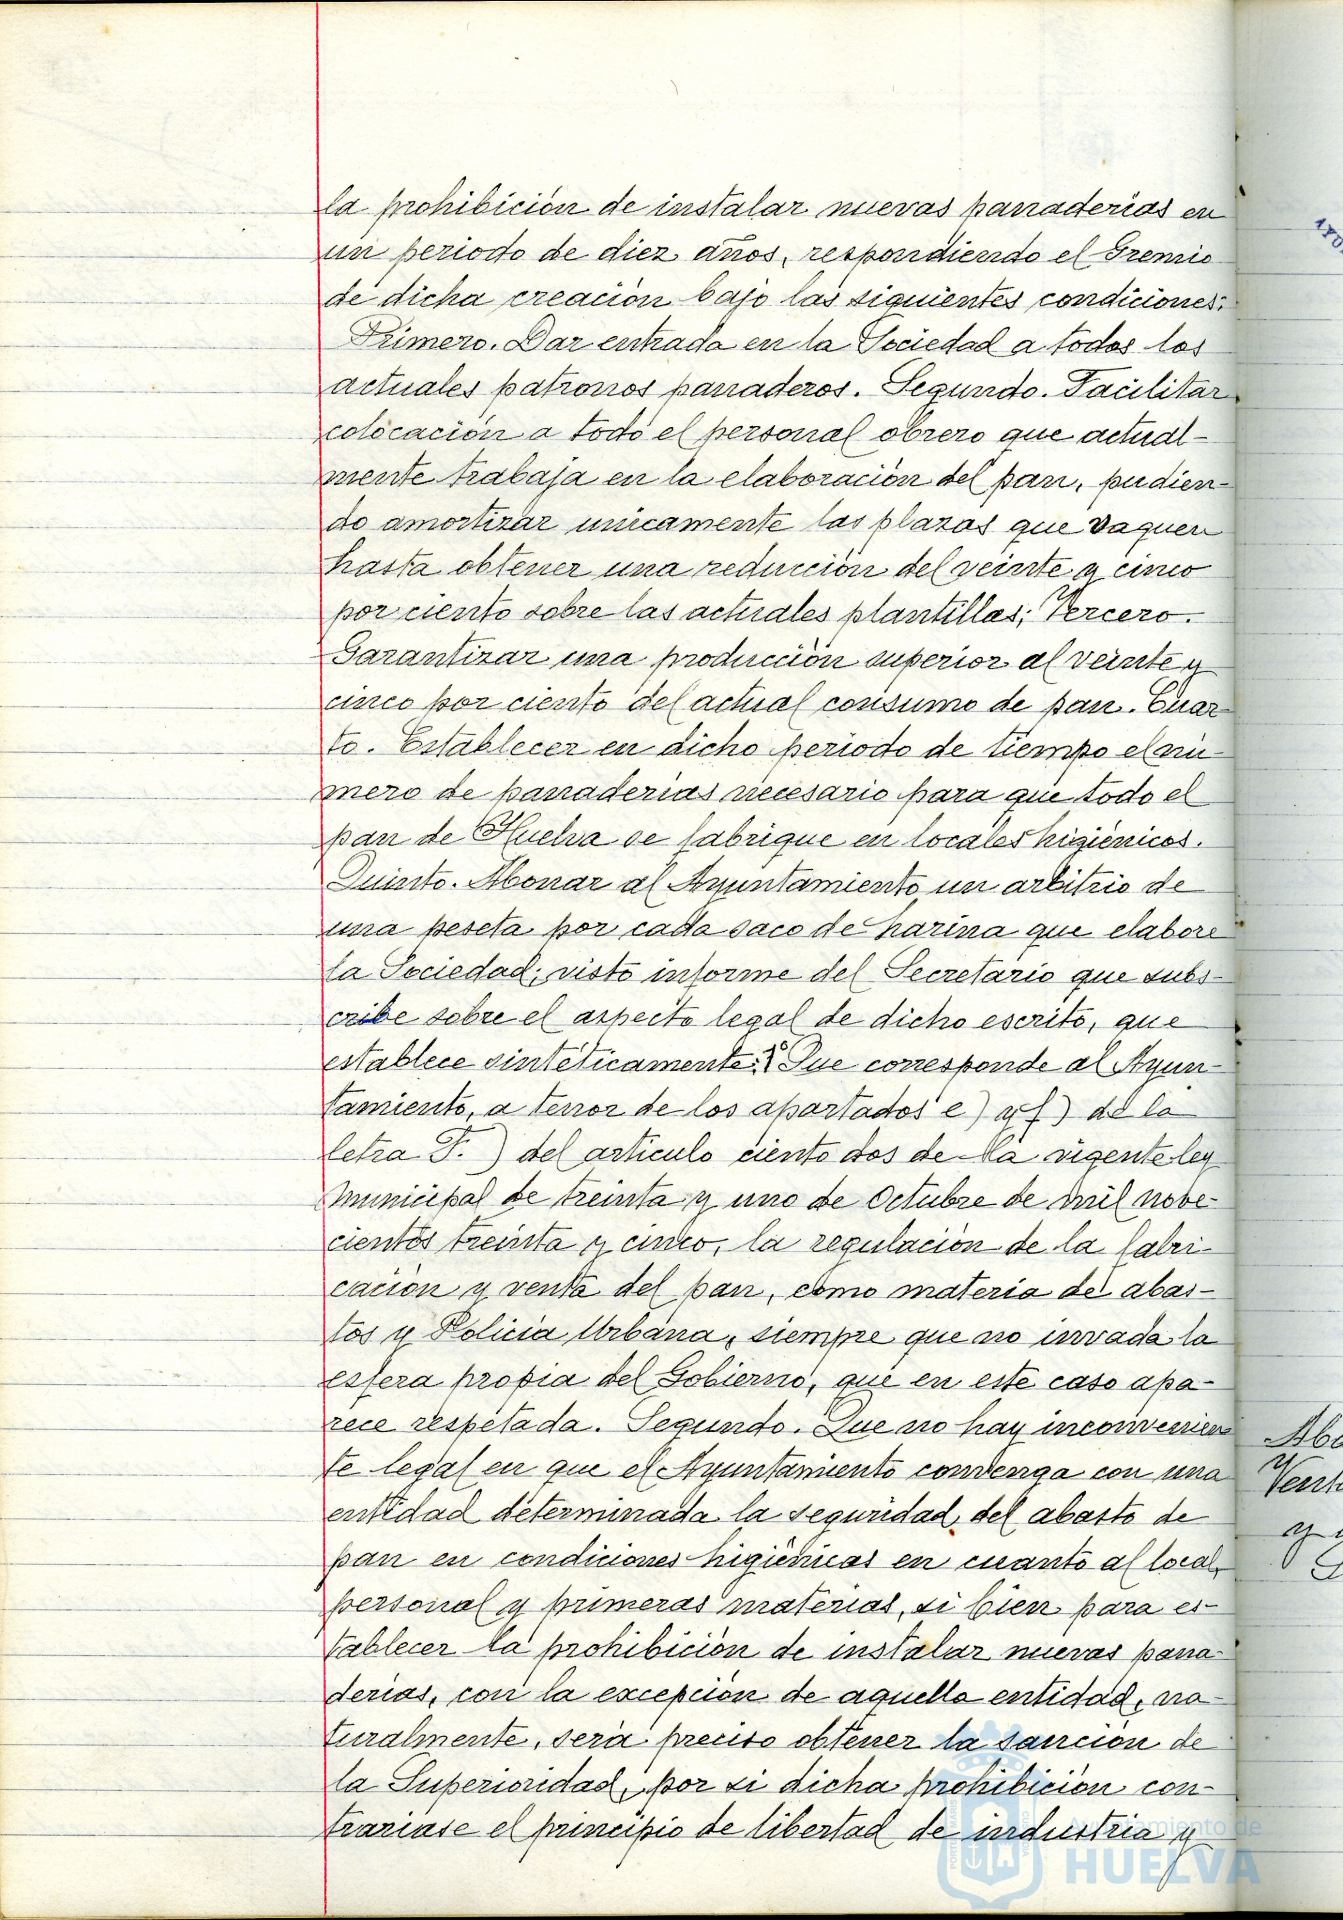 la prohibición de instalar nuevas panaderías en
un periodo de diez años, respondiendo el Gremio
de dicha creación bajo las siguientes condiciones:
Primero. Dar entrada en la Sociedad a todos los
actuales patronos panaderos. Segundo. Facilitar
colocación a todo el personal obrero que actual-
mente trabaja en la elaboración del pan, pudien-
do amortizar unicamente las plazas que vaquen
hasta obtener una reducción del veinte y cinco
por ciento sobre las actuales plantillas; Tercero.
Garantizar una producción superior al veinte y
cinco por ciento del actual consumo de pan. Cuar-
to. Establecer en dicho periodo de tiempo el nú-
mero de panaderías necesario para que todo el
pan de Huelva se fabrique en locales higiénicos.
Quinto. Abonar al Ayuntamiento un arbitrio de
una peseta por cada saco de harina que elabore
la Sociedad; visto informe del Secretario que subs-
cribe sobre el aspecto legal de dicho escrito, que
establece sintéticamente: 1º Que corresponde al Ayun-
tamiento, a tenor de los apartados e) y f) de la
letra F.) del artículo ciento dos de la vigente ley
Municipal de treinta y uno de Octubre de mil nove-
cientos treinta y cinco, la regulación de la fabri-
cación y venta del pan, como materia de abas-
tos y Policía Urbana, siempre que no invada la
esfera propia del Gobierno, que en este caso apa-
rece respetada. Segundo. Que no hay inconvenien-
te legal en que el Ayuntamiento convenga con una
entidad determinada la seguridad del abasto de
pan en condiciones higiénicas en cuanto al local,
personal y primeras materias, si bien para es-
tablecer la prohibición de instalar nuevas pana-
derías, con la excepción de aquella entidad, na-
turalmente, será preciso obtener la sanción de
la Superioridad, por si dicha prohibición con-
trariase el principio de libertad de industria y
Ayuntamiento de
HUELVA